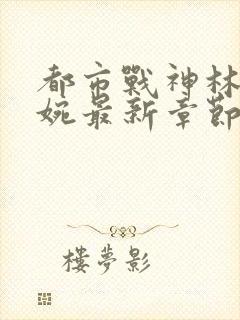 都市戰神林
婉最新章節
樓夢影